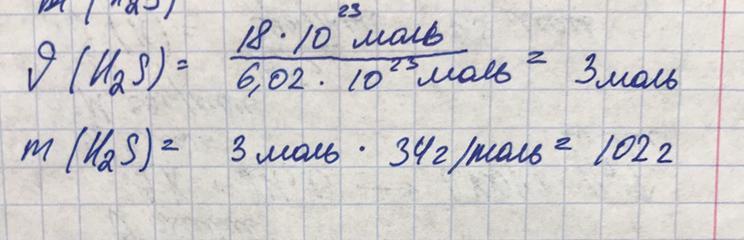 m (H₂S)
ν (H₂S) = 18 · 10²³ моль / 6,02 · 10²³ моль = 3 моль
m (H₂S) = 3 моль · 34 г/моль = 102 г